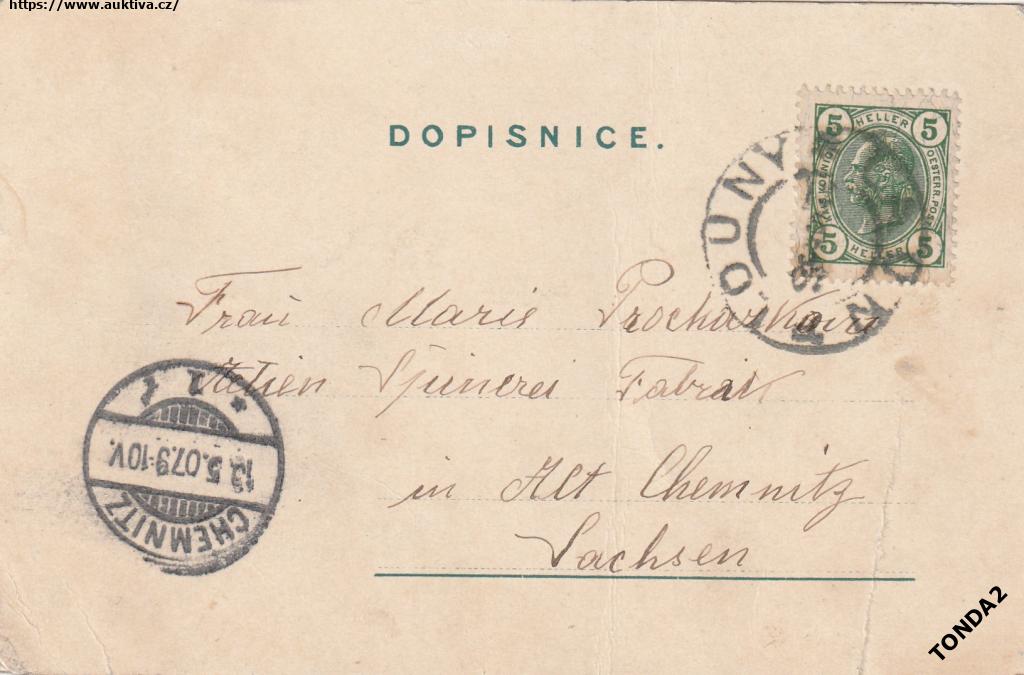 https://www.auktiva.cz/
DOPISNICE.
5 HELLER 5
KAIS. KOENIGL. OESTERR. POST
5 HELLER 5
LOUNY
LAUN
07
Frau Marie Prochazkova
Actien Spinerei Fabrik
in Alt Chemnitz
Sachsen
CHEMNITZ
13.5.07.9-10V.
* 1
TONDA2